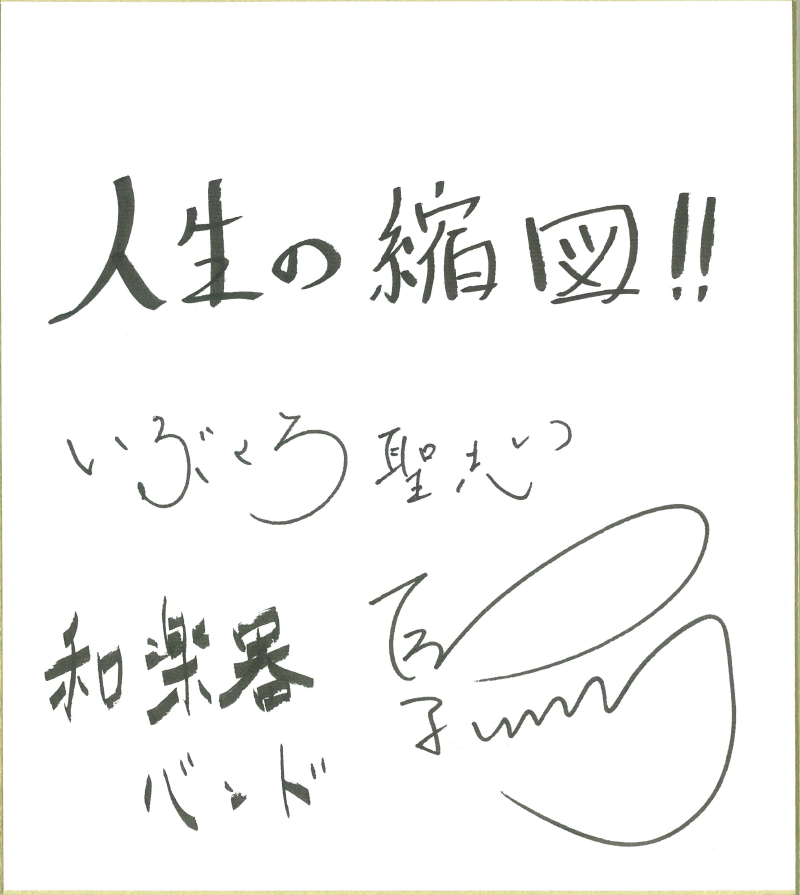 人生の縮図!!
いぶくろ聖志
和楽器
バンド